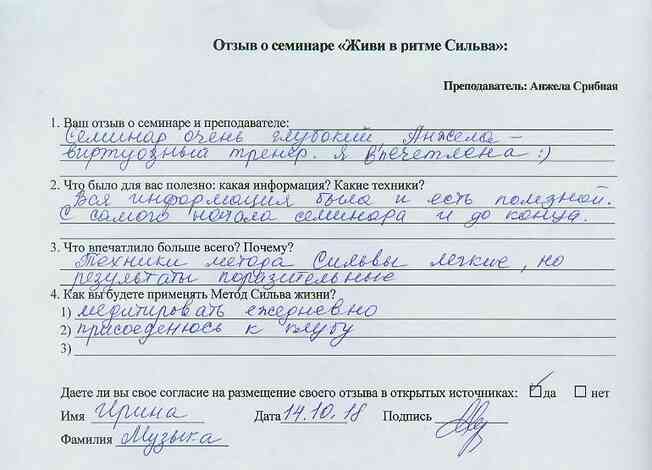 Отзыв о семинаре «Живи в ритме Сильва»:
Преподаватель: Анжела Срибная
1. Ваш отзыв о семинаре и преподавателе:
Семинар очень глубокий, Анжела –
виртуозный тренер. Я впечетлена :)
2. Что было для вас полезно: какая информация? Какие техники?
Вся информация была и есть полезной.
С самого начала семинара и до конца.
3. Что впечатлило больше всего? Почему?
Техники метода Сильвы легкие, но
результаты поразительные
4. Как вы будете применять Метод Сильва жизни?
1) медитировать ежедневно
2) присоеденюсь к клубу
3)
Даете ли вы свое согласие на размещение своего отзыва в открытых источниках: да нет
Имя Ирина Дата 14.10.18 Подпись
Фамилия Музыка